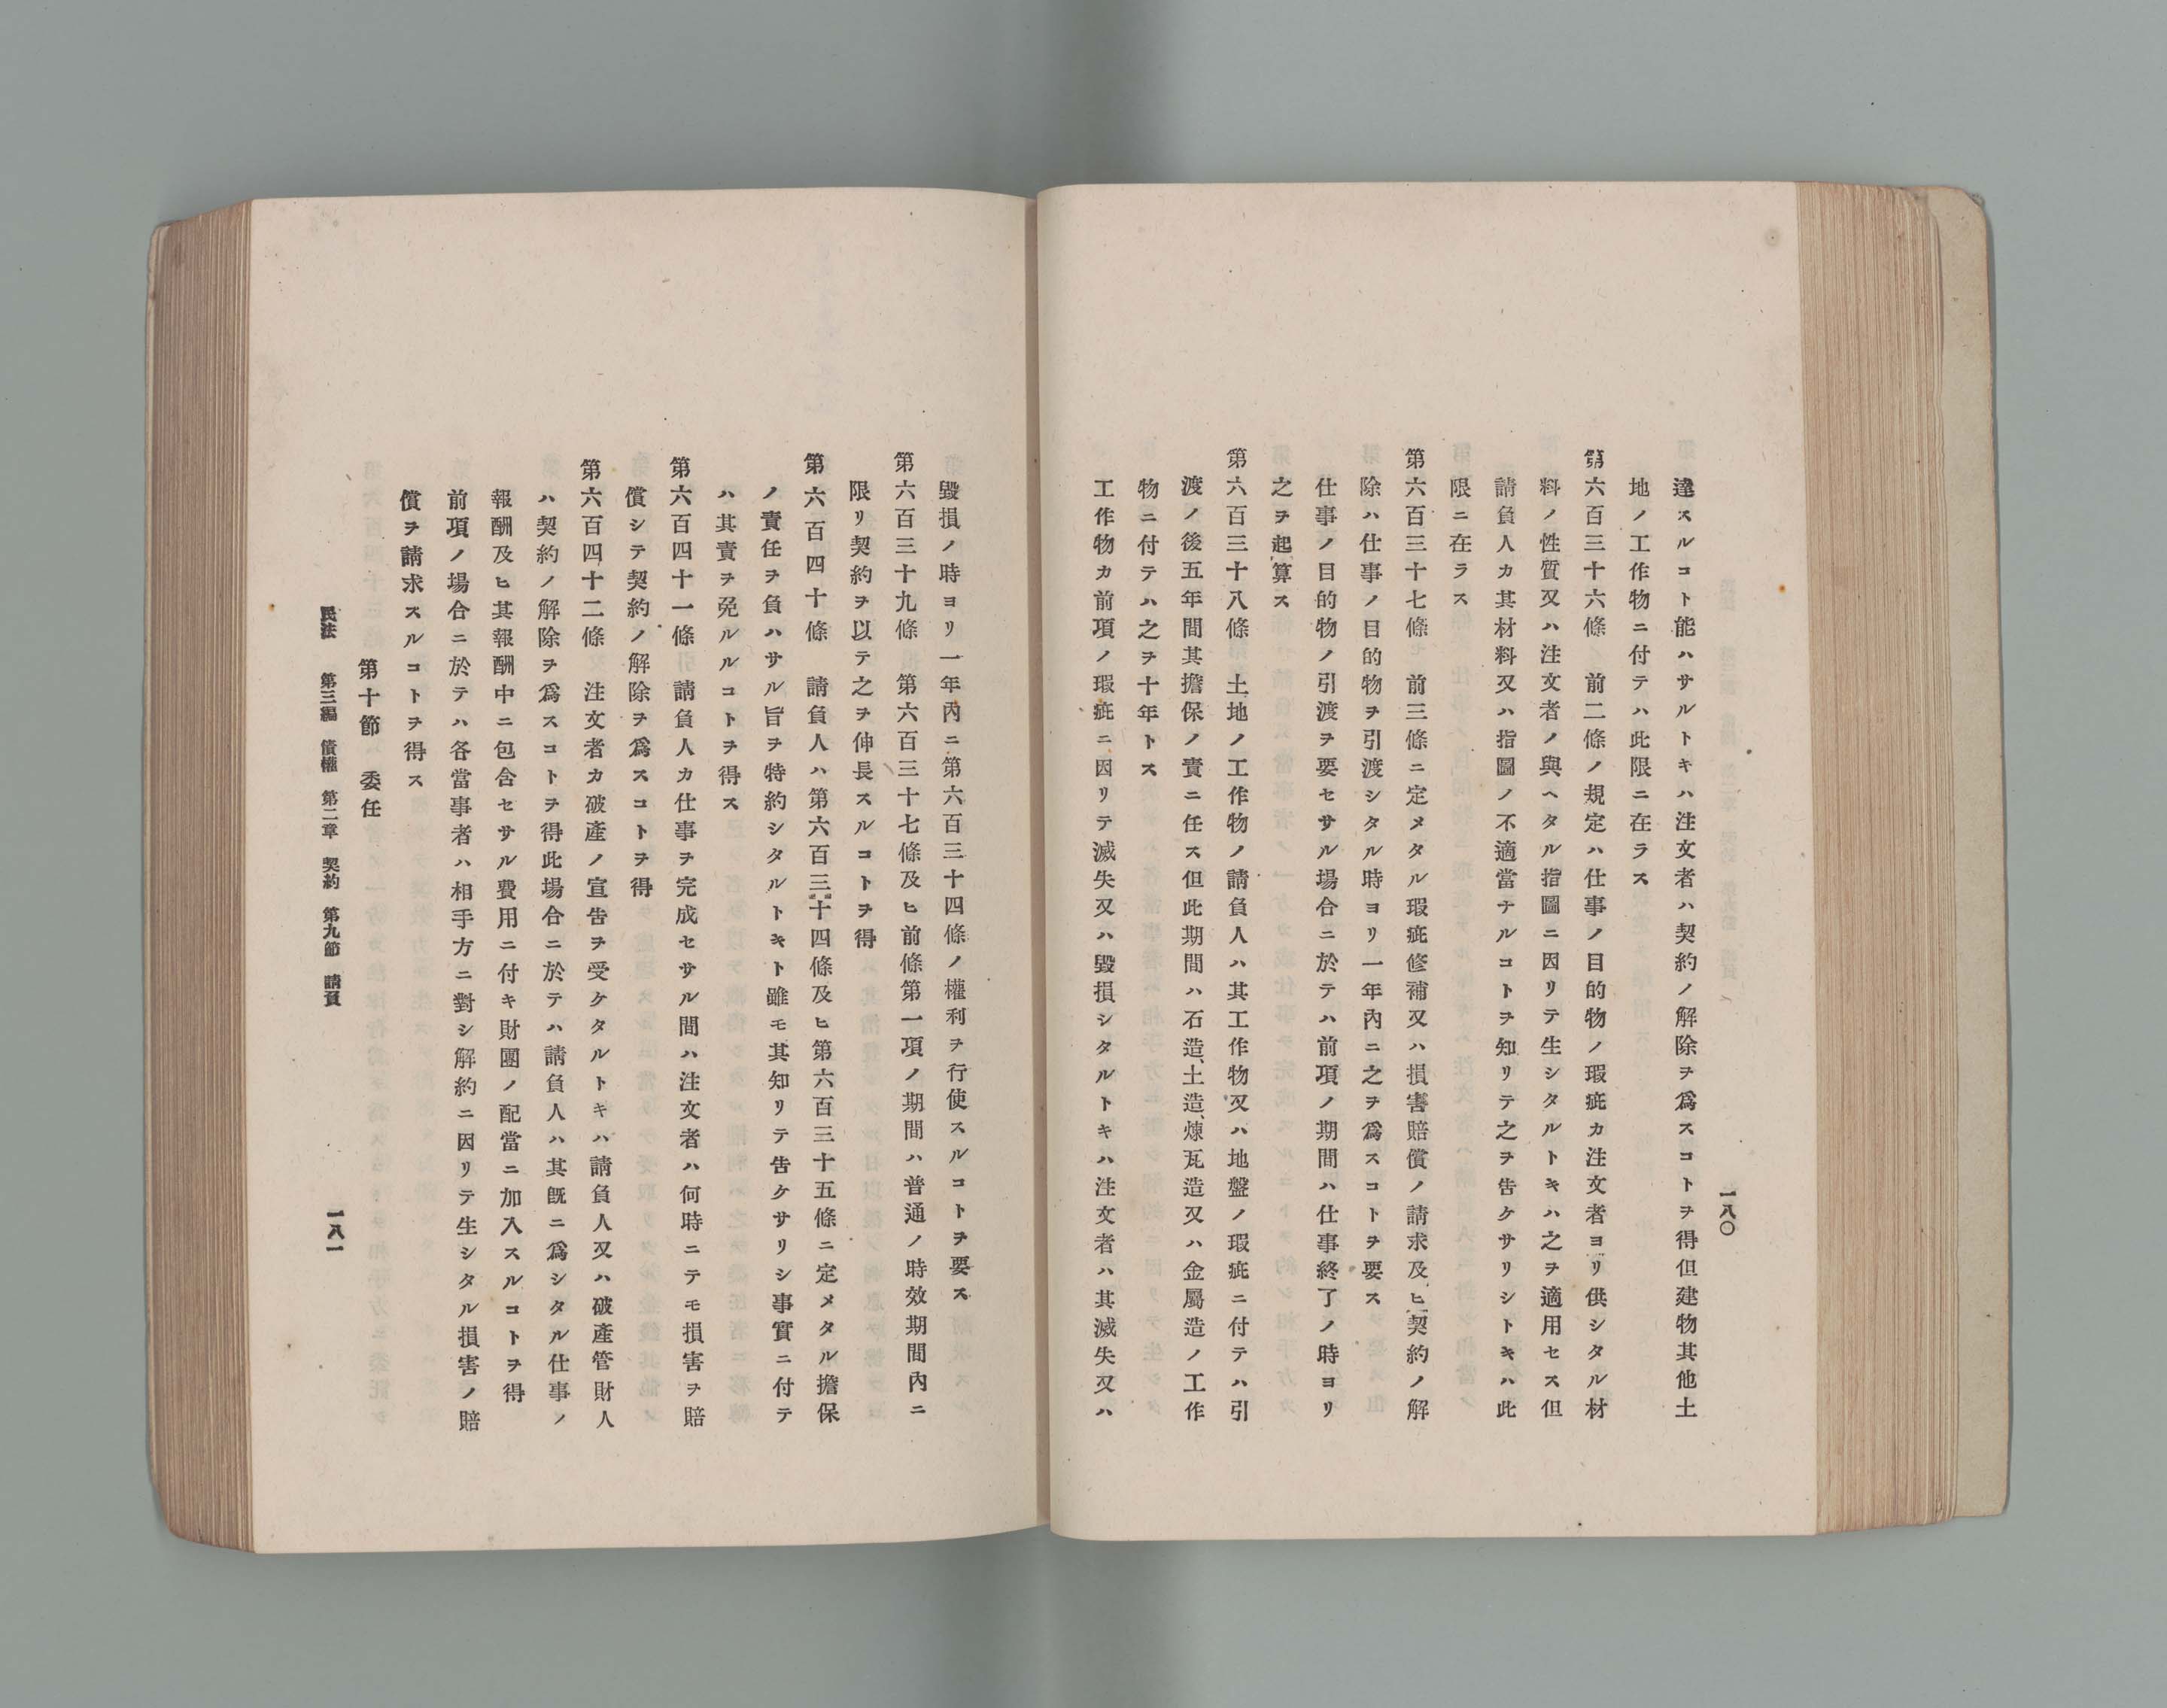 一八〇
達スルコト能ハサルトキハ注文者ハ契約ノ解除ヲ爲スコトヲ得但建物其他土
地ノ工作物ニ付テハ此限ニ在ラス
第六百三十六條 前二條ノ規定ハ仕事ノ目的物ノ瑕疵カ注文者ヨリ供シタル材
料ノ性質又ハ注文者ノ與ヘタル指圖ニ因リテ生シタルトキハ之ヲ適用セス但
請負人カ其材料又ハ指圖ノ不適當ナルコトヲ知リテ之ヲ告ケサリシトキハ此
限ニ在ラス
第六百三十七條 前三條ニ定メタル瑕疵修補又ハ損害賠償ノ請求及ヒ契約ノ解
除ハ仕事ノ目的物ヲ引渡シタル時ヨリ一年內ニ之ヲ爲スコトヲ要ス
仕事ノ目的物ノ引渡ヲ要セサル場合ニ於テハ前項ノ期間ハ仕事終了ノ時ヨリ
之ヲ起算ス
第六百三十八條 土地ノ工作物ノ請負人ハ其工作物又ハ地盤ノ瑕疵ニ付テハ引
渡ノ後五年間其擔保ノ責ニ任ス但此期間ハ石造、土造、煉瓦造又ハ金屬造ノ工作
物ニ付テハ之ヲ十年トス
工作物カ前項ノ瑕疵ニ因リテ滅失又ハ毀損シタルトキハ注文者ハ其滅失又ハ
毀損ノ時ヨリ一年內ニ第六百三十四條ノ權利ヲ行使スルコトヲ要ス
第六百三十九條 第六百三十七條及ヒ前條第一項ノ期間ハ普通ノ時效期間內ニ
限リ契約ヲ以テ之ヲ伸長スルコトヲ得
第六百四十條 請負人ハ第六百三十四條及ヒ第六百三十五條ニ定メタル擔保
ノ責任ヲ負ハサル旨ヲ特約シタルトキト雖モ其知リテ告ケサリシ事實ニ付テ
ハ其責ヲ免ルルコトヲ得ス
第六百四十一條 請負人カ仕事ヲ完成セサル間ハ注文者ハ何時ニテモ損害ヲ賠
償シテ契約ノ解除ヲ爲スコトヲ得
第六百四十二條 注文者カ破產ノ宣告ヲ受ケタルトキハ請負人又ハ破產管財人
ハ契約ノ解除ヲ爲スコトヲ得此場合ニ於テハ請負人ハ其旣ニ爲シタル仕事ノ
報酬及ヒ其報酬中ニ包含セサル費用ニ付キ財團ノ配當ニ加入スルコトヲ得
前項ノ場合ニ於テハ各當事者ハ相手方ニ對シ解約ニ因リテ生シタル損害ノ賠
償ヲ請求スルコトヲ得ス
第十節 委任
民法 第三編 債權 第二章 契約 第九節 請負
一八一